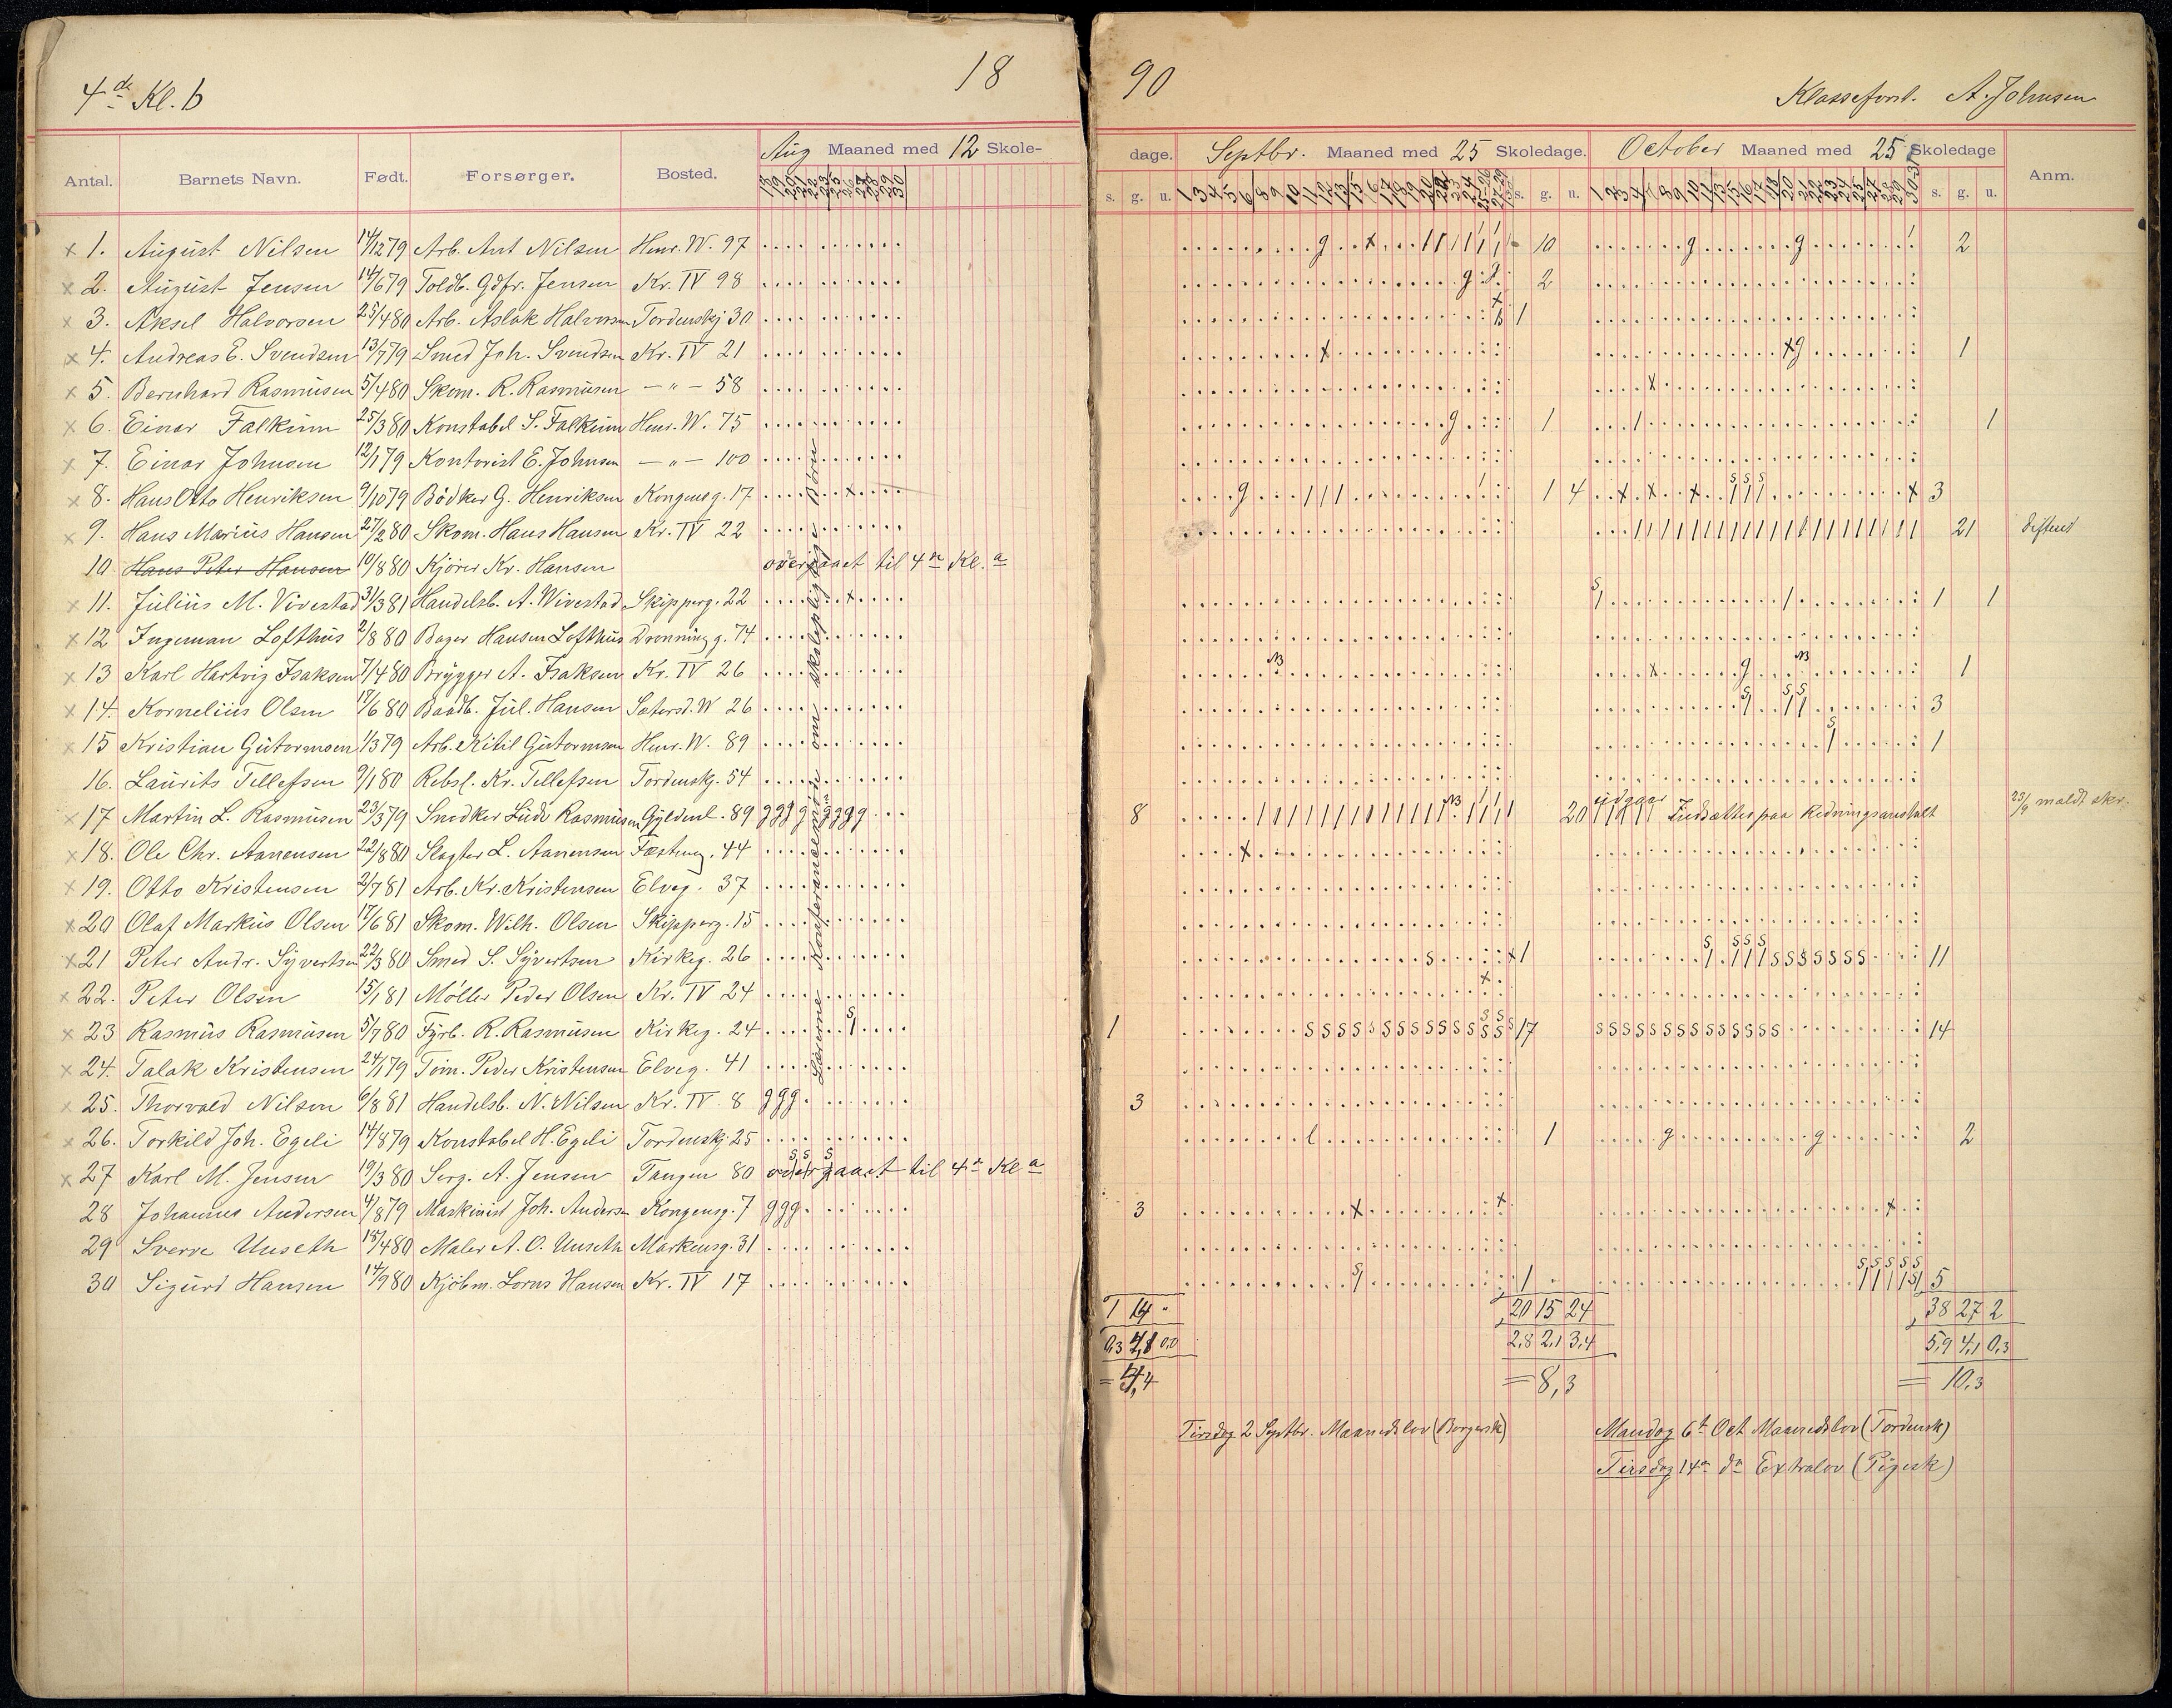 4de Kl. b 18 90 Klasseforst. A. Johnsen
Antal. Barnets Navn. Født. Forsørger. Bosted. Aug Maaned med 12 Skole- dage. s. g. u. Septbr. Maaned med 25 Skoledage. s. g. u. October Maaned med 25 Skoledage s. g. u. Anm.
x 1. August Nilsen 14/1279 Arb. Ant Nilsen Henr. W. 97 10 2
x 2. August Jensen 14/679 Toldb. Gdfr. Jensen Kr. IV 98 2
x 3. Aksel Halvorsen 25/480 Arb. Aslak Halvorsen Tordenskj 30 1
x 4. Andreas E. Svendsen 13/779 Smed Joh. Svendsen Kr. IV 21 1
x 5. Bernhard Rasmusen 5/480 Skom. R. Rasmusen — " — 58
x 6. Einar Falkum 25/380 Konstabel S. Falkum Henr. W. 75 1 1
x 7. Einar Johnsen 12/179 Kontorist E. Johnsen — " — 100
x 8. Hans Otto Henriksen 9/1079 Bødker G. Henriksen Kongensg. 17 1 4 3
x 9. Hans Marius Hansen 27/280 Skom. Hans Hansen Kr. IV 22 21
10 Hans Peter Hansen 10/880 Kjører Kr. Hansen overgaaet til 4de Kl. a
x 11. Julius M. Vivestad 31/381 Handelsb. A. Wivestad Skipperg. 22 1 1
x 12 Ingeman Lofthus 2/880 Bager Hansen Lofthus Dronningg. 74
x 13 Karl Hartvig Isaksen 7/480 Brygger A. Isaksen Kr. IV 26 1
x 14. Kornelius Olsen 17/680 Baadb. Jul. Hansen Sætersd. W 26 3
x 15 Kristian Gutormsen 1/379 Arb. Kitil Gutormsen Henr. W. 89 1
16. Laurits Tellefsen 9/180 Rebsl. Kr. Tellefsen Tordenskj. 54
x 17 Martin L. Rasmusen 23/379 Snedker Lude Rasmusen Gyldenl. 89 g g g g g g g g 8 20 udgaar Indsættes paa Redningsanstalt 23/9 meldt skr.
x 18. Ole Chr. Aanensen 22/880 Slagter L. Aanensen Fæstning. 44
x 19. Otto Kristensen 2/781 Arb. Kr. Kristensen Elveg. 37
x 20 Olaf Markus Olsen 17/681 Skom. Wilh. Olsen Skipperg. 15
x 21 Peter Andr. Syvertsen 22/380 Smed S. Syvertsen Kirkeg. 26 1 11
x 22. Peter Olsen 15/181 Møller Peder Olsen Kr. IV 24
x 23 Rasmus Rasmusen 5/780 Fyrb. R. Rasmusen Kirkeg. 24 1 17 14
x 24. Talak Kristensen 24/179 Tøm. Peder Kristensen Elveg. 41
x 25. Thorvald Nilsen 6/881 Handelsb. N. Nilsen Kr. IV 8 g g g 3
x 26. Torkild Joh. Egeli 14/879 Konstabel H. Egeli Tordenskj. 25 1 2
x 27 Karl M. Jensen 19/380 Serg. A. Jensen Tangen 80 overgaaet til 4de Kl a
28 Johannes Andersen 4/879 Maskinist Joh. Andersen Kongensg. 7 g g g 3
29 Sverre Unseth 15/480 Maler A. O. Unseth Markensg. 31
30 Sigurd Hansen 14/980 Kjøbm. Lorns Hansen Kr. IV 17 1 5
Lærerne Konferancemøde om skolepligtige Børn
1 14 - 20 15 24 38 27 2
0,3 4,1 0,0 2,8 2,1 3,4 5,9 4,1 0,3
= 4,4 = 8,3 = 10,3
Tirsdag 2 Septbr. Maanedslov (Borgersk) Mandag 6te Oct Maanedslov (Tordensk)
Tirsdag 14de do Extralov (Pigesk)